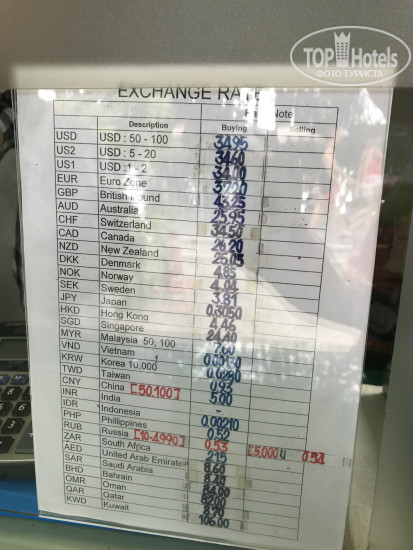 TOP Hotels
ФОТО ТУРИСТА
EXCHANGE RATE
Note
Description Buying Selling
USD USD : 50 - 100 34.95
US2 USD : 5 - 20 34.60
US1 USD : 1 - 2 34.00
EUR Euro Zone
GBP British Pound
AUD Australia 25.95
CHF Switzerland
CAD Canada 26.20
NZD New Zealand
DKK Denmark 4.85
NOK Norway 4.04
SEK Sweden 3.81
JPY Japan 0.3050
HKD Hong Kong 4.46
SGD Singapore 24.40
MYR Malaysia 50, 100
VND Vietnam
KRW Korea 10,000 0.0290
TWD Taiwan 0.93
CNY China [50.100] 5.00
INR India
IDR Indonesia 0.00210
PHP Phillippines 0.52
RUB Russia [10-4990] 0.53 [5,000 0.54
ZAR South Africa
AED United Arab Emirate 8.60
SAR Saudi Arabia 8.40
BHD Bahrain
OMR Oman
QAR Qatar 8.90
KWD Kuwait 106.00